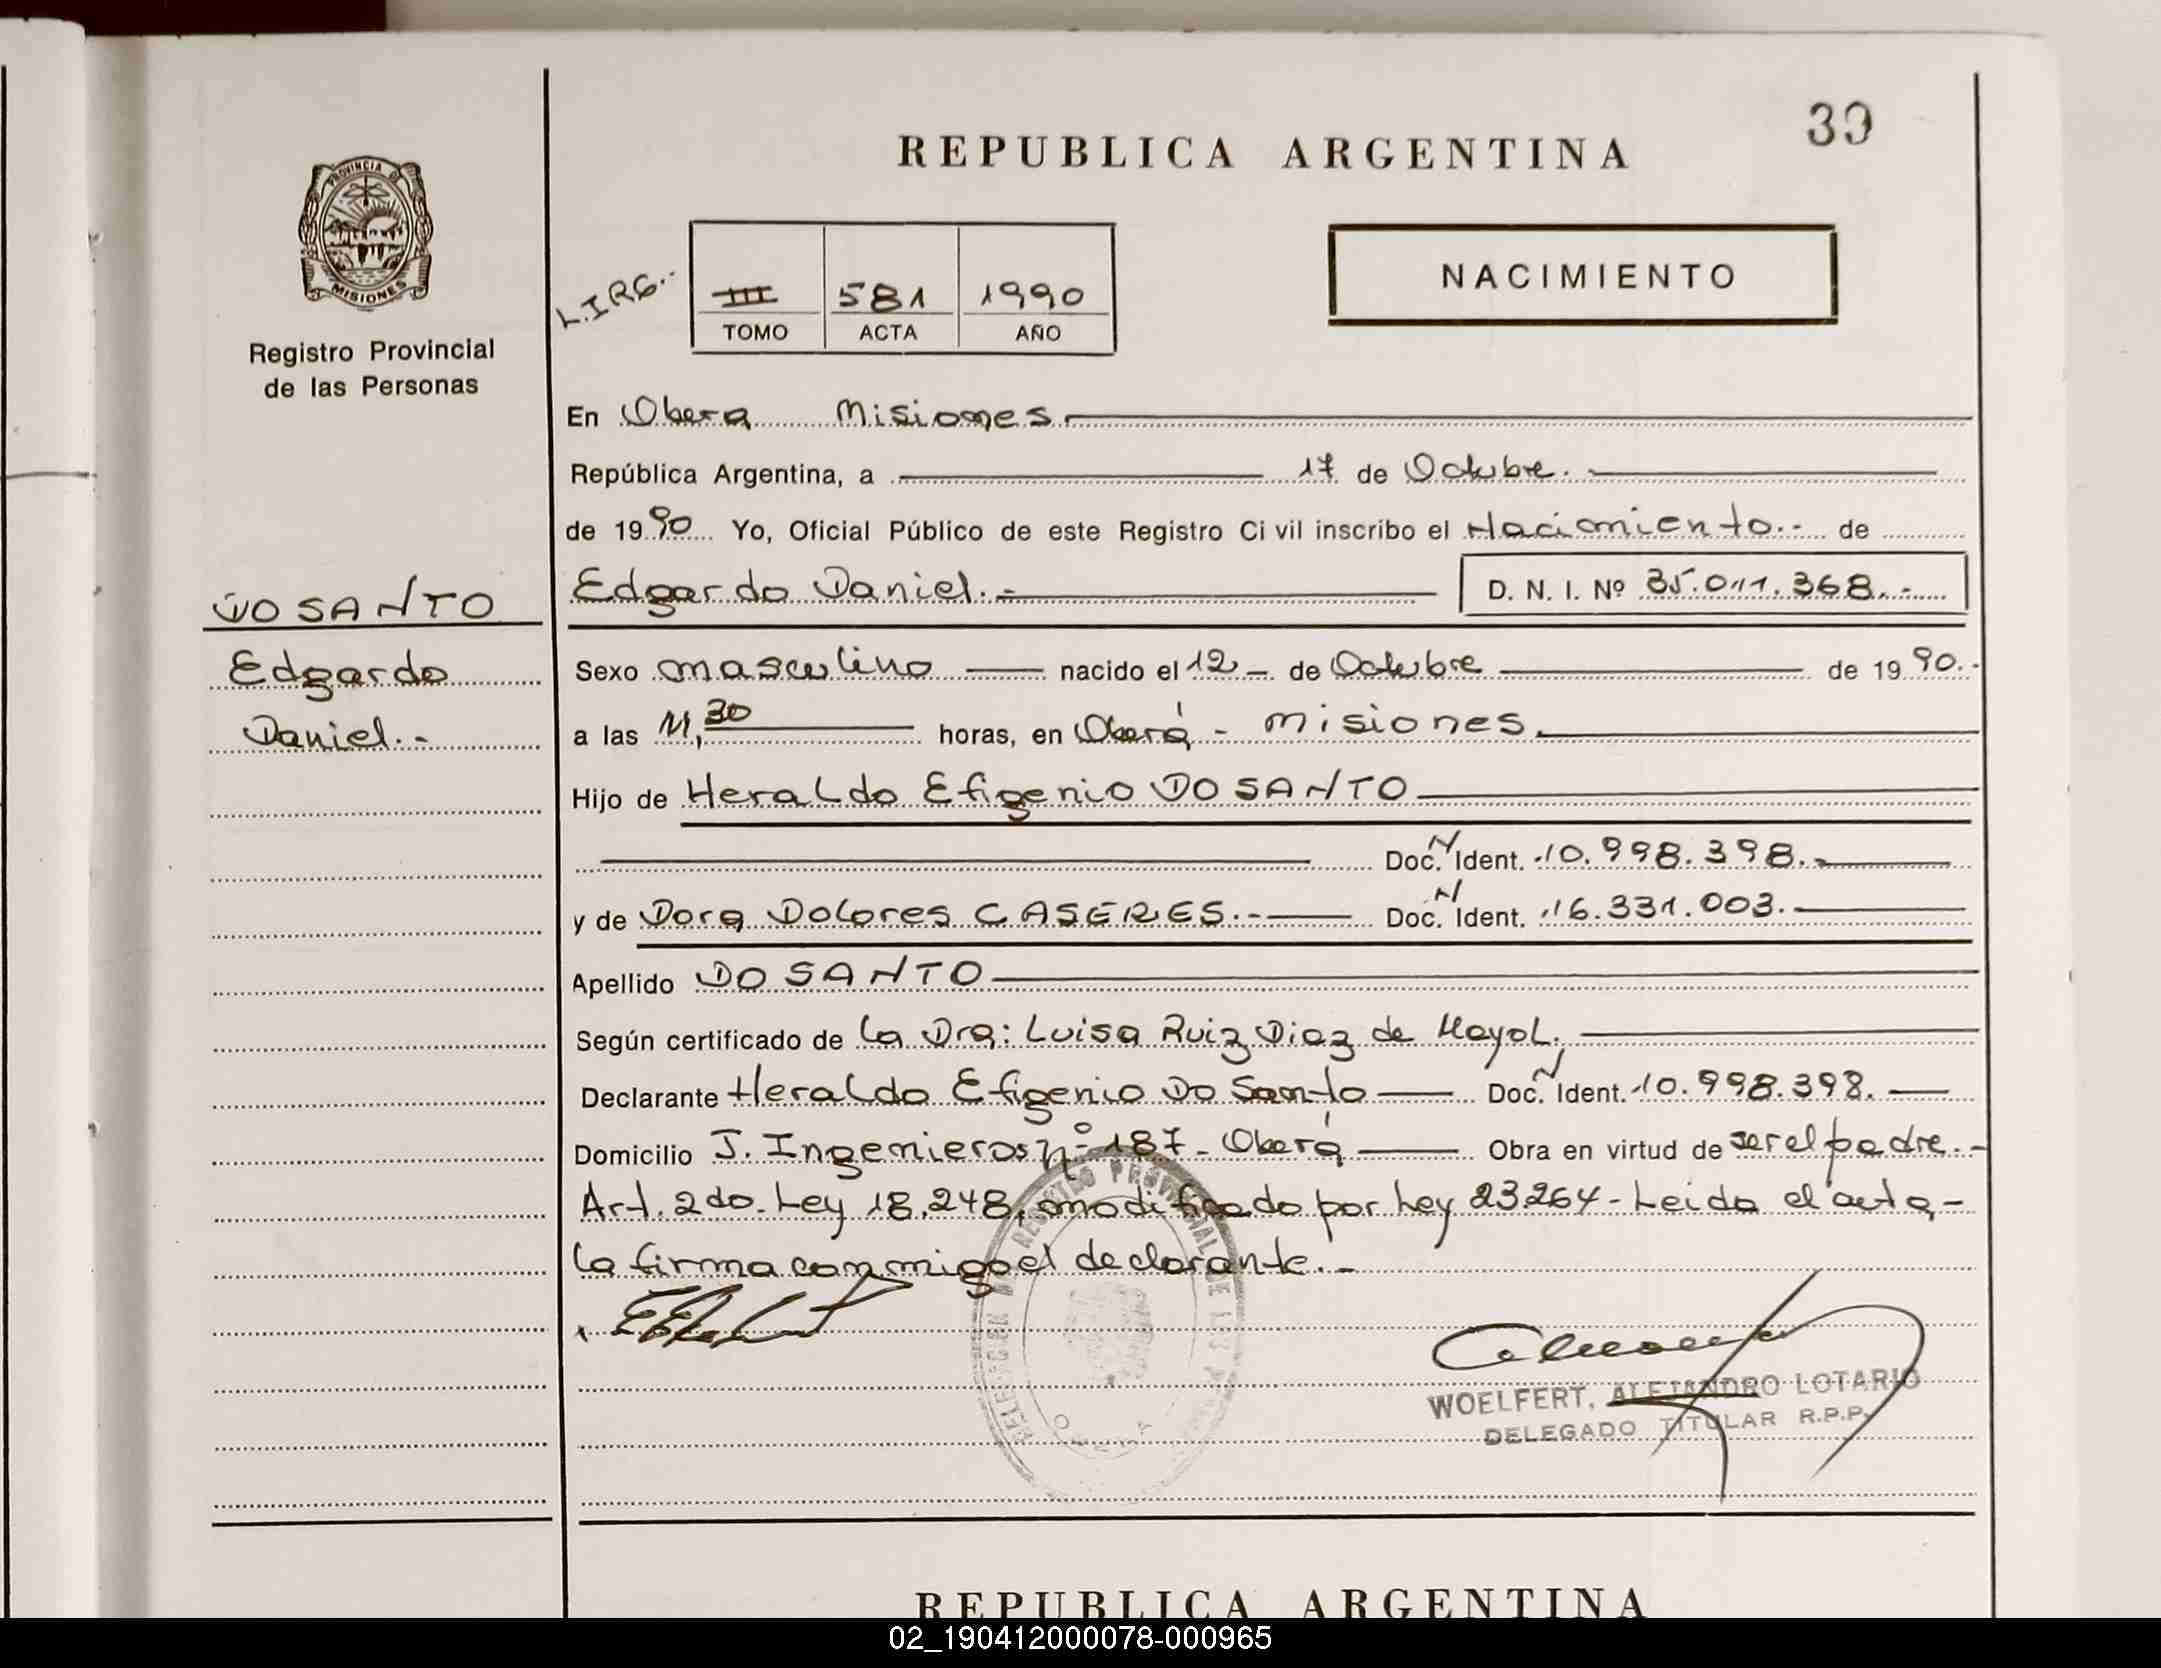 39
REPUBLICA ARGENTINA
PROVINCIA DE
MISIONES
Registro Provincial
de las Personas
L.IRG.-
III 581 1990
TOMO ACTA AÑO
NACIMIENTO
En Obera Misiones
República Argentina, a 17 de Octubre.
de 1990 Yo, Oficial Público de este Registro Civil inscribo el Nacimiento.- de
DO SANTO
Edgardo
Daniel.-
Edgardo Daniel.- D. N. I. Nº 35.011.368.-
Sexo masculino nacido el 12 - de Octubre de 1990.-
a las 11,30 horas, en Oberá - Misiones.
Hijo de Heraldo Efigenio DO SANTO
Doc. N Ident. 10.998.398.-
y de Dora Dolores CASERES.- Doc. N Ident. 16.331.003.-
Apellido DO SANTO
Según certificado de la Dra: Luisa Ruiz Diaz de Mayol.
Declarante Heraldo Efigenio Do Santo Doc. N Ident. 10.998.398.
Domicilio J. Ingenieros nº 187 - Oberá Obra en virtud de ser el padre.-
Art. 2do. Ley 18.248, modificado por Ley 23.264 - Leida el acta,-
la firma conmigo el declarante.-
DELEGACION REGISTRO PROVINCIAL DE LAS
OBERA
WOELFERT, ALEJANDRO LOTARIO
DELEGADO TITULAR R.P.P.
REPUBLICA ARGENTINA
02_190412000078-000965